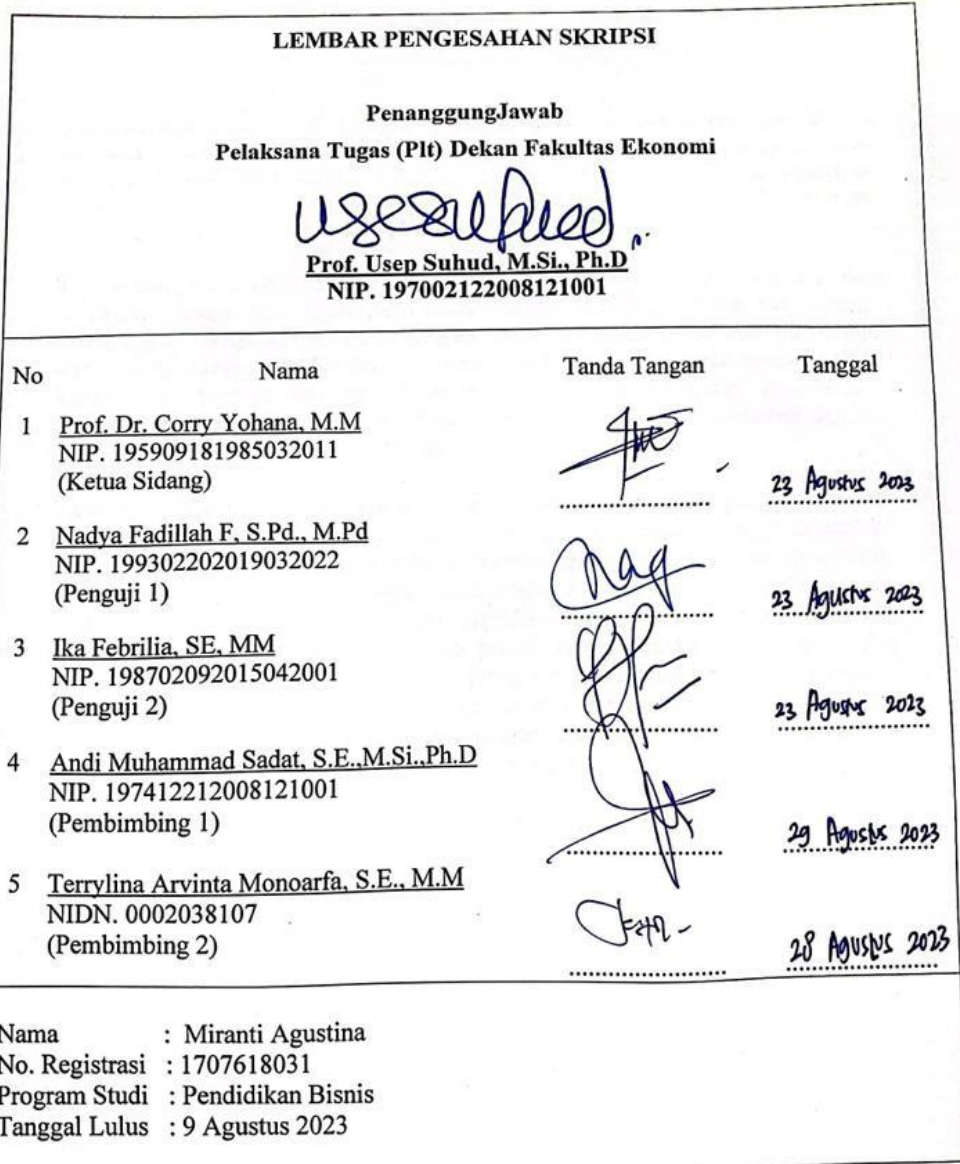 LEMBAR PENGESAHAN SKRIPSI
PenanggungJawab
Pelaksana Tugas (Plt) Dekan Fakultas Ekonomi
Prof. Usep Suhud, M.Si., Ph.D
NIP. 197002122008121001
No Nama Tanda Tangan Tanggal
1 Prof. Dr. Corry Yohana, M.M
NIP. 195909181985032011
(Ketua Sidang) 23 Agustus 2023
2 Nadya Fadillah F, S.Pd., M.Pd
NIP. 199302202019032022
(Penguji 1) 23 Agustus 2023
3 Ika Febrilia, SE, MM
NIP. 198702092015042001
(Penguji 2) 23 Agustus 2023
4 Andi Muhammad Sadat, S.E.,M.Si.,Ph.D
NIP. 197412212008121001
(Pembimbing 1) 29 Agustus 2023
5 Terrylina Arvinta Monoarfa, S.E., M.M
NIDN. 0002038107
(Pembimbing 2) 28 Agustus 2023
Nama : Miranti Agustina
No. Registrasi : 1707618031
Program Studi : Pendidikan Bisnis
Tanggal Lulus : 9 Agustus 2023